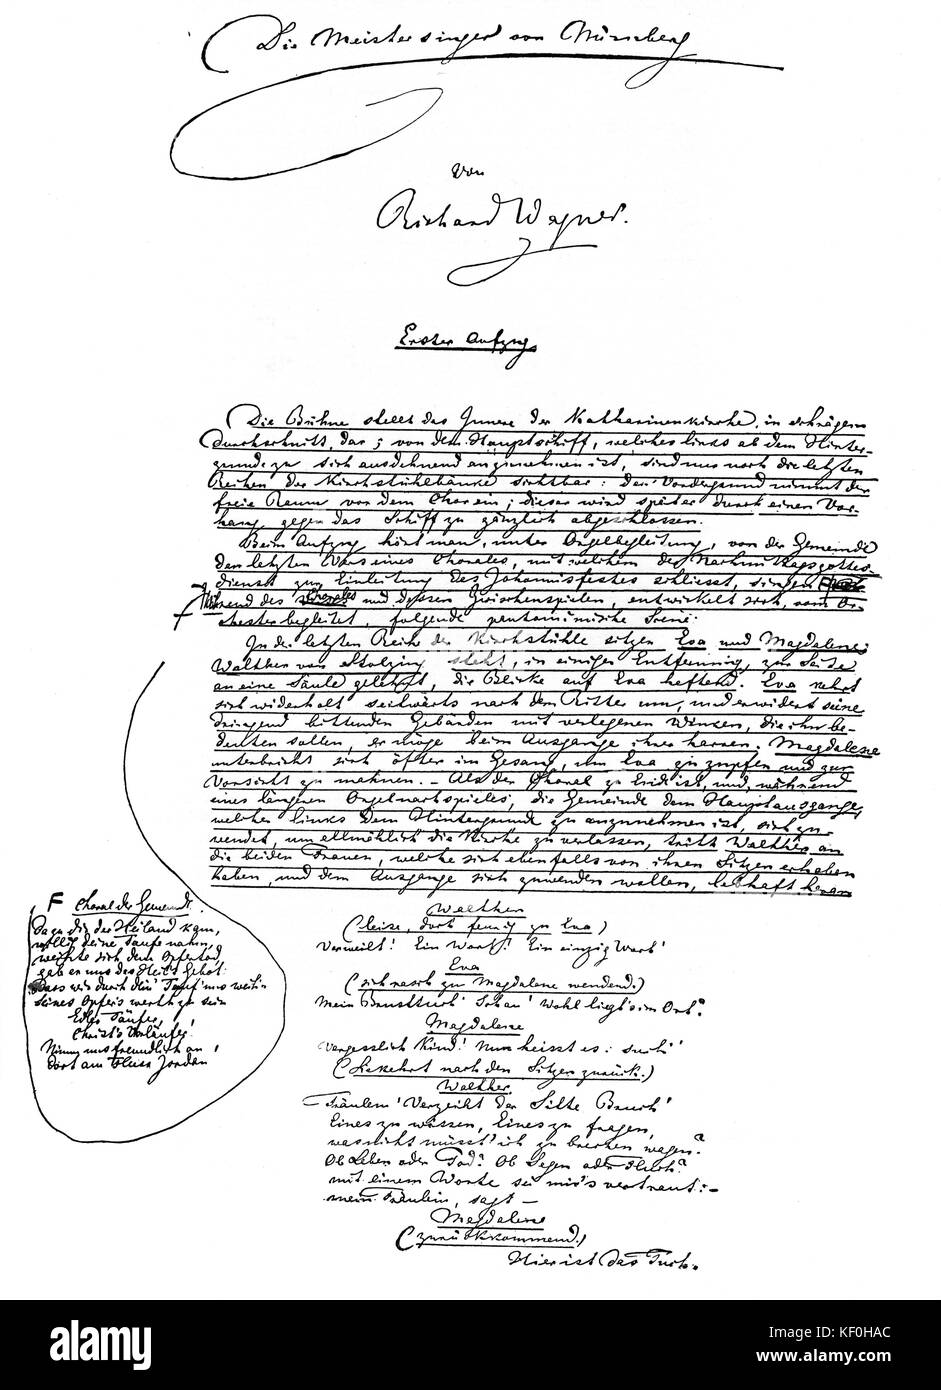 Die Meistersinger von Nürnberg
von
Richard Wagner.
Erster Aufzug
Die Bühne stellt das Innere der Katharinenkirche, in schrägem
Durchschnitt, dar; von dem Hauptschiff, welches links ab dem Hinter-
grunde zu sich ausdehnend anzunehmen ist, sind nur noch die letzten
Reihen der Kirchstühlbänke sichtbar: den Vordergrund nimmt der
freie Raum vor dem Chor ein; dieser wird später durch einen Vor-
hang gegen das Schiff zu gänzlich abgeschlossen.
Beim Aufzug hört man, unter Orgelbegleitung, von der Gemeinde
den letzten Vers eines Chorales, mit welchem der Nachmittagsgottes-
dienst zur Einleitung des Johannisfestes schliesst, singen
Während des Chorales und dessen Zwischenspielen, entwickelt sich, vom Or-
chester begleitet, folgende pantomimische Scene:
In der letzten Reihe der Kirchstühle sitzen Eva und Magdalene;
Walther von Stolzing steht, in einiger Entfernung, zur Seite
an eine Säule gelehnt, die Blicke auf Eva heftend. Eva kehrt
sich wiederholt seitwärts nach dem Ritter um, und erwidert seine
dringend bittenden Gebärden mit verlegenen Winken, die ihm be-
deuten sollen, er möge beim Ausgange ihrer harren. Magdalene
unterbricht sich öfter im Gesang, um Eva zu zupfen und zur
Vorsicht zu mahnen. – Als der Choral zu Ende ist, und, während
eines längeren Orgelnachspieles, die Gemeinde dem Hauptausgange,
welcher links dem Hintergrunde zu anzunehmen ist, sich zu-
wendet, um allmählich die Kirche zu verlassen, tritt Walther an
die beiden Frauen, welche sich ebenfalls von ihren Sitzen erhoben
haben, und dem Ausgange sich zuwenden wollen, lebhaft heran
F Choral der Gemeinde.
Da zu dir der Heiland kam,
willig deine Taufe nahm,
weihte sich dem Opfertod,
gab er uns des Heil's Gebot:
Dass wir durch dein' Tauf' uns weih'n
seines Opfers werth zu sein
Edler Täufer,
Christ's Vorläufer!
Nimm uns freundlich an,
dort am Fluss Jordan
Walther
(leise, doch feurig zu Eva)
Verweilt! Ein Wort! Ein einzig Wort!
Eva
(sich rasch zu Magdalene wendend.)
Mein Brusttuch! Schau! Wohl liegt's im Ort?
Magdalene
Vergesslich Kind! Nun heisst es: such'!
(Sie kehrt nach den Sitzen zurück.)
Walther
Fräulein! Verzeiht der Sitte Bruch!
Eines zu wissen, Eines zu fragen,
was nicht müsst' ich zu brechen wagen?
Ob Leben oder Tod? Ob Segen oder Fluch?
mit einem Worte sei mir's vertraut: –
mein Fräulein, sagt –
Magdalene
(zurückkommend.)
Hier ist das Tuch.
alamy
alamy
Image ID: KF0HAC
www.alamy.com